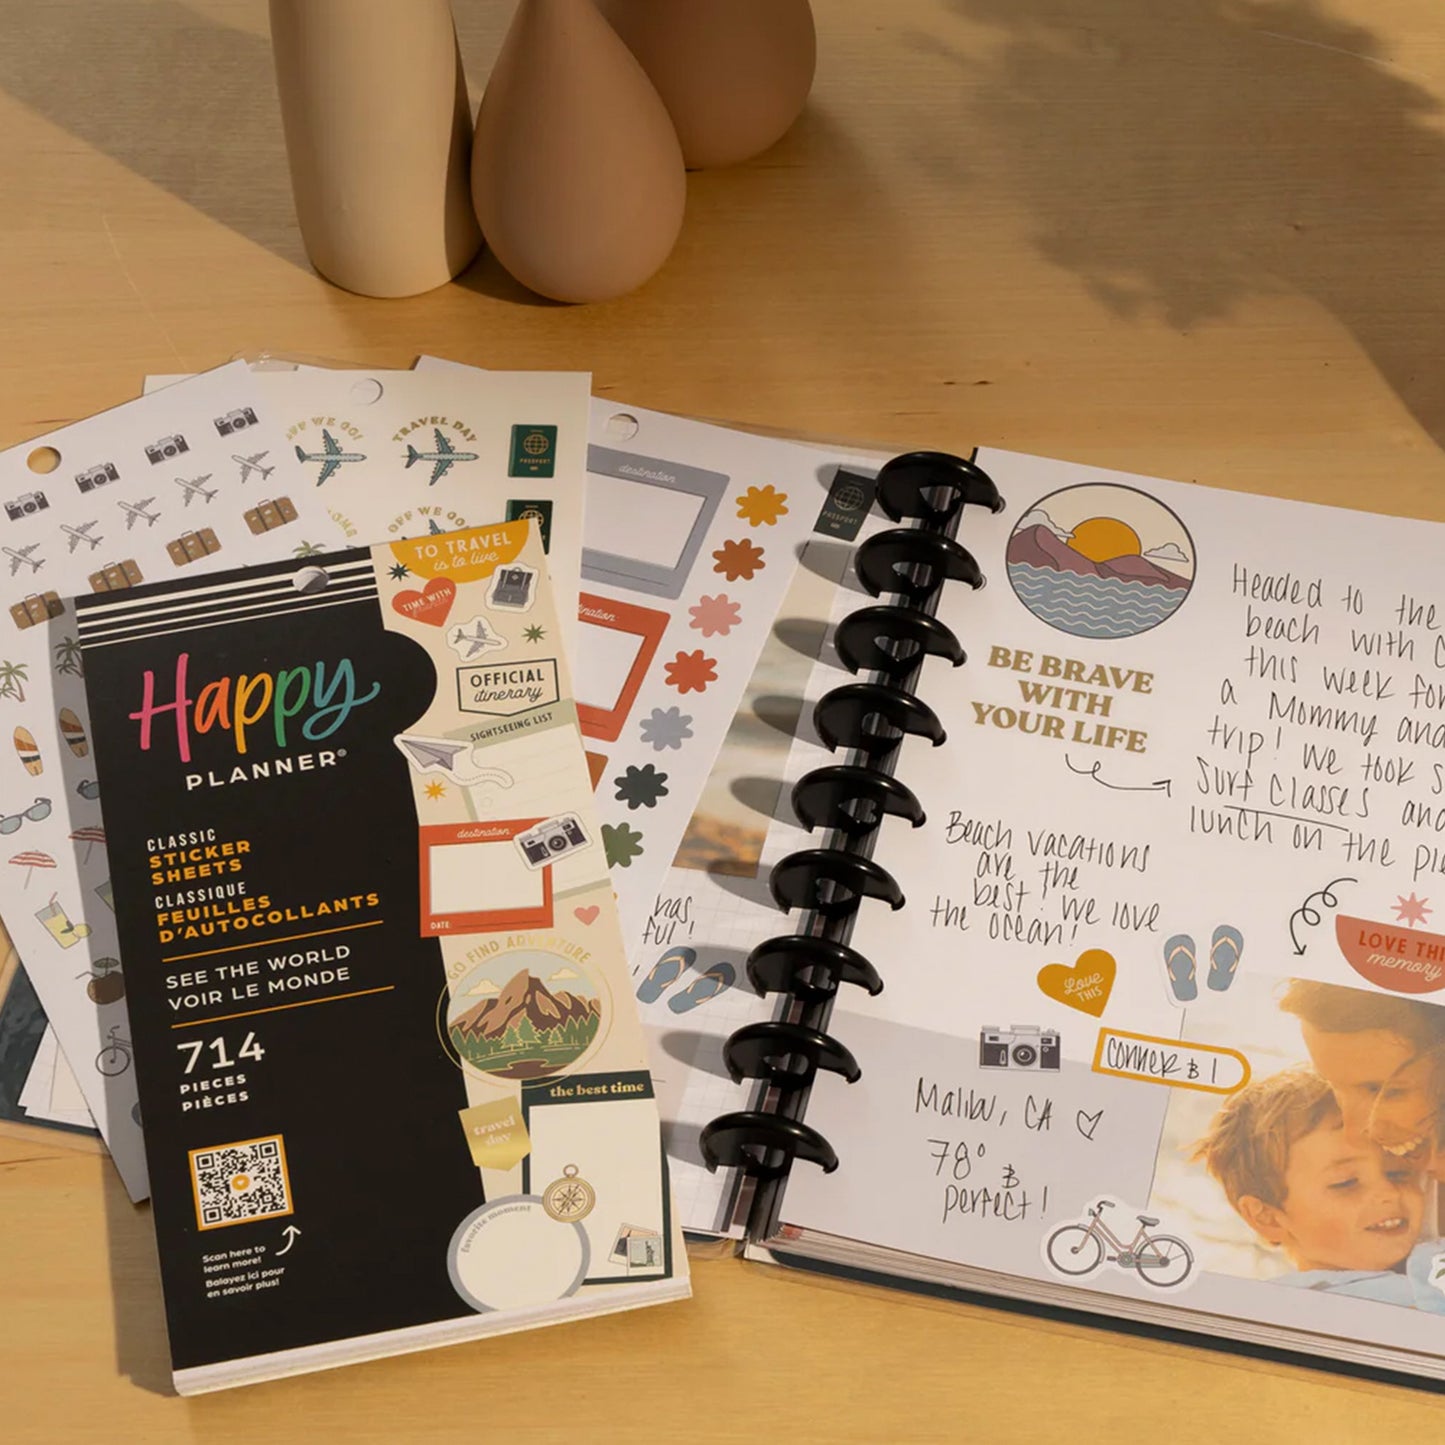 OFF WE GO!
TRAVEL DAY
PASSPORT
OFF WE GO!
destination
PASSPORT
TO TRAVEL
is to live
TIME WITH
OFFICIAL
itinerary
SIGHTSEEING LIST
destination:
DATE:
GO FIND ADVENTURE
the best time
travel
day
favorite moment
Happy
PLANNER®
CLASSIC
STICKER
SHEETS
CLASSIQUE
FEUILLES
D'AUTOCOLLANTS
SEE THE WORLD
VOIR LE MONDE
714
PIECES
PIÈCES
Scan here to
learn more!
Balayez ici pour
en savoir plus!
BE BRAVE
WITH
YOUR LIFE
Headed to the
beach with
this week for
a Mommy and
trip! We took
surf classes and
lunch on the
Beach vacations
are the
best! We love
the ocean!
Love
THIS
LOVE THIS
memory
Conner & I
Malibu, CA
78°
&
perfect!